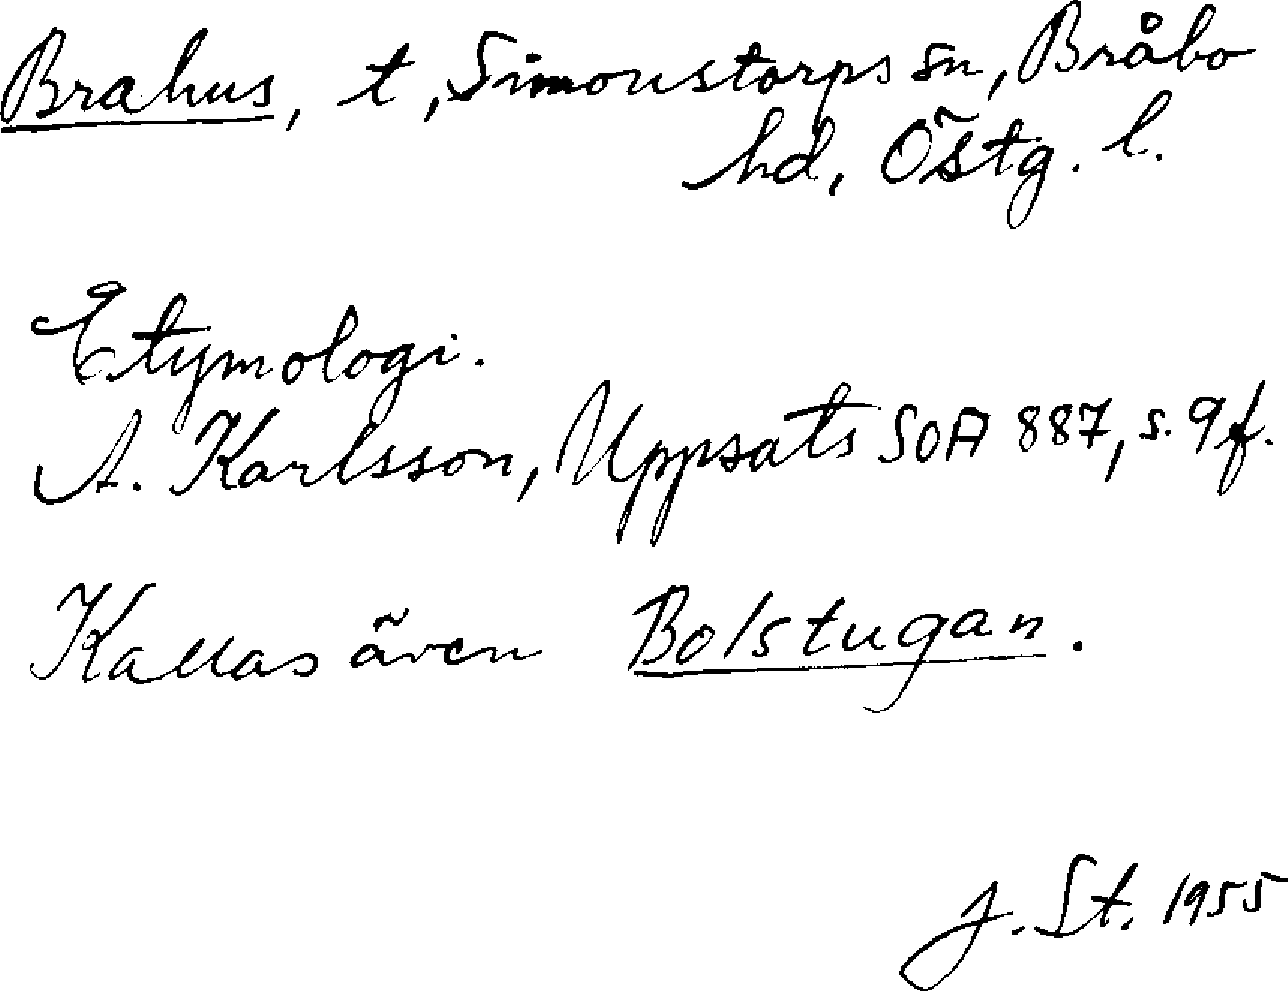 Brahus, t, Simonstorps sn, Bråbo
hd, Östg. l.
Etymologi.
A. Karlsson, Uppsats SOA 887, s. 9 f.
Kallas även Bolstugan.
J. St. 1955